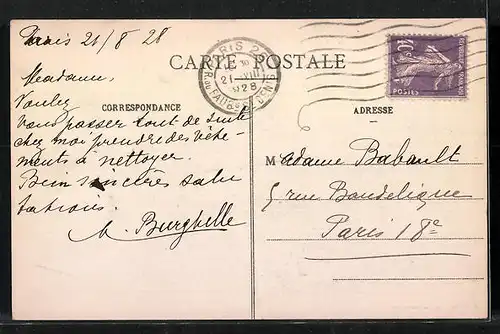 Paris 21/8 28
CARTE POSTALE
PARIS 2
21 VIII
1928
R. DU FAUB. ST DENIS
40
POSTES
CORRESPONDANCE
ADRESSE
Madame,
Voulez
vous passer tout de suite
chez moi prendre des vête-
ments à nettoyer.
Bien sincères salu
tations.
M. Burghelle
Madame Babault
5 rue Baudelique
Paris 18e